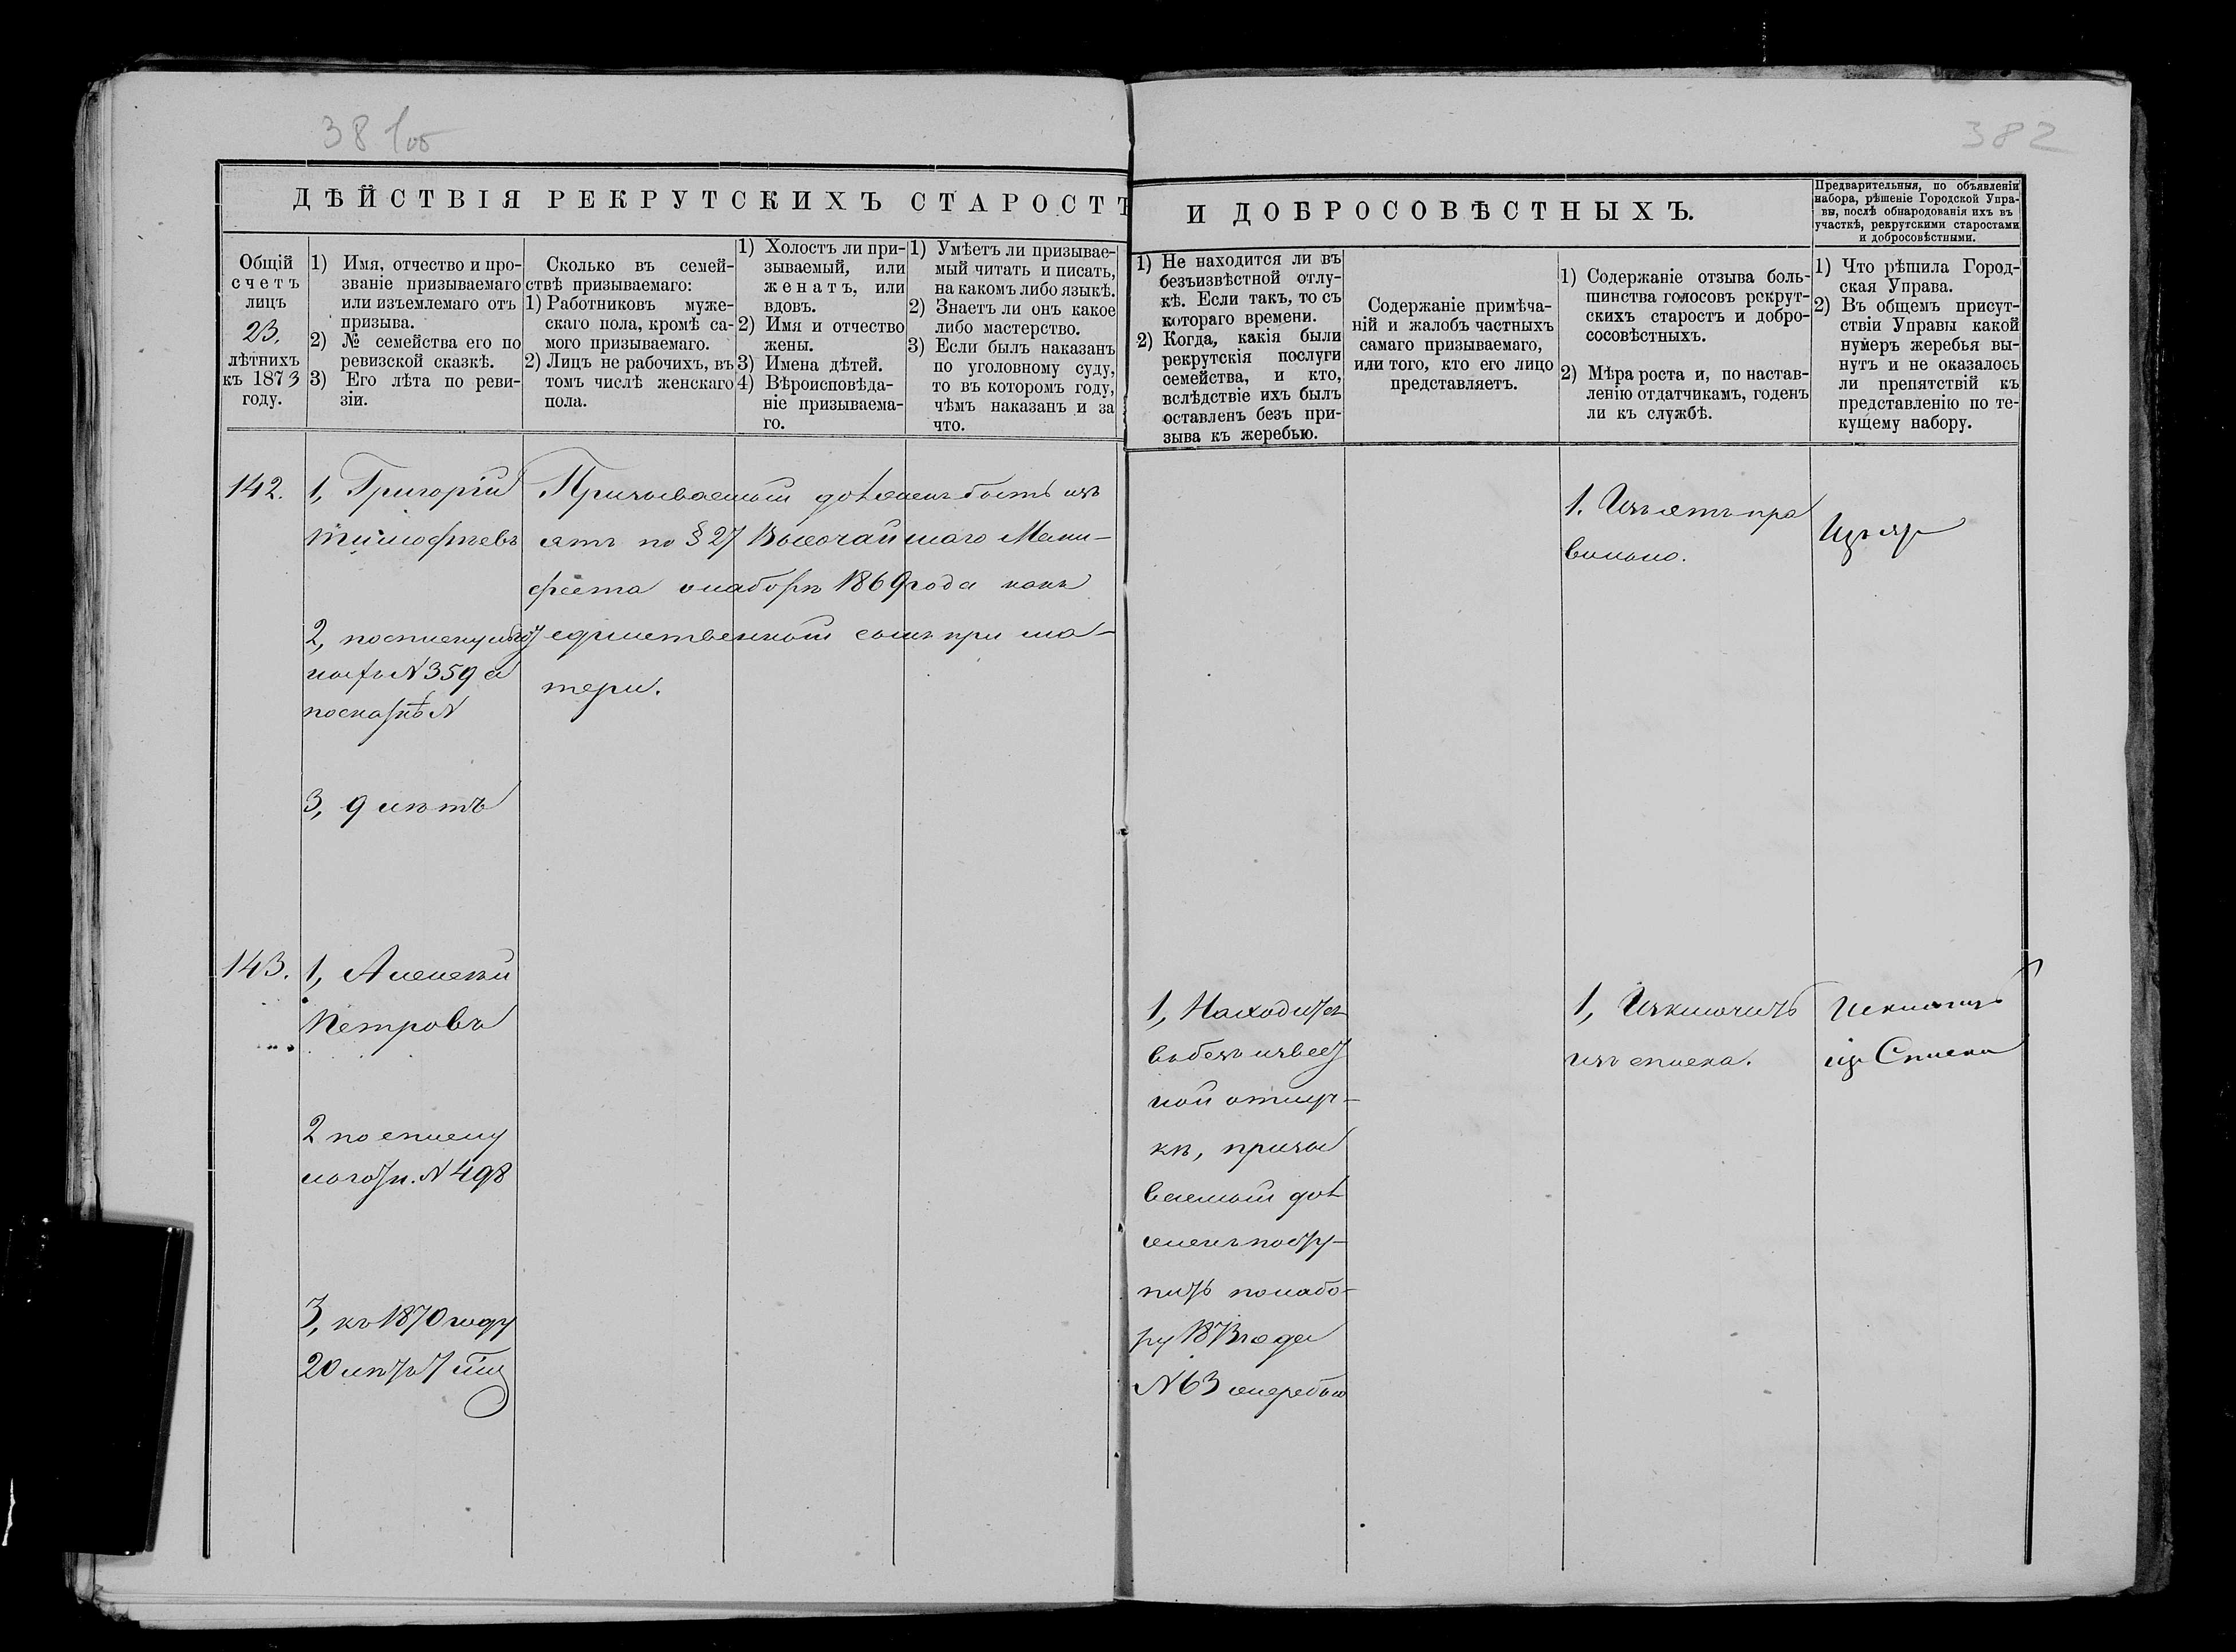 381об
382
ДѢЙСТВІЯ РЕКРУТСКИХЪ СТАРОСТЪ
И ДОБРОСОВѢСТНЫХЪ.
Предварительныя, по объявленіи
набора, рѣшеніе Городской Упра-
вы, послѣ обнародованія ихъ въ
участкѣ, рекрутскими старостами
и добросовѣстными.
Общій
счетъ
лицъ
23.
лѣтнихъ
къ 1873
году.
1) Имя, отчество и про-
званіе призываемаго
или изъемлемаго отъ
призыва.
2) № семейства его по
ревизской сказкѣ.
3) Его лѣта по реви-
зіи.
Сколько въ семей-
ствѣ призываемаго:
1) Работниковъ муже-
скаго пола, кромѣ са-
мого призываемаго.
2) Лицъ не рабочихъ, въ
томъ числѣ женскаго
пола.
1) Холостъ ли при-
зываемый, или
женатъ, или
вдовъ.
2) Имя и отчество
жены.
3) Имена дѣтей.
4) Вѣроисповѣда-
ніе призываема-
го.
1) Умѣетъ ли призывае-
мый читать и писать,
на какомъ либо языкѣ.
2) Знаетъ ли онъ какое
либо мастерство.
3) Если былъ наказанъ
по уголовному суду,
то въ которомъ году,
чѣмъ наказанъ и за
что.
1) Не находится ли въ
безъизвѣстной отлу-
кѣ. Если такъ, то съ
котораго времени.
2) Когда, какія были
рекрутскія послуги
семейства, и кто,
вслѣдствіе ихъ былъ
оставленъ безъ при-
зыва къ жеребью.
Содержаніе примѣча-
ній и жалобъ частныхъ
самаго призываемаго,
или того, кто его лицо
представляетъ.
1) Содержаніе отзыва боль-
шинства голосовъ рекрут-
скихъ старостъ и добро-
сосовѣстныхъ.
2) Мѣра роста и, по настав-
ленію отдатчикамъ, годенъ
ли къ службѣ.
1) Что рѣшила Город-
ская Управа.
2) Въ общемъ присут-
ствіи Управы какой
нумеръ жеребья вы-
нутъ и не оказалось
ли препятствій къ
представленію по те-
кущему набору.
142.
1, Григорій
Тимофѣевъ
2, по списку
N 359 а
по сказкѣ N
3, 9 лѣтъ
Призываемый долженъ быть изъ
ятъ по § 27 Высочайшаго Мани-
феста о наборѣ 1869 года какъ
единственный сынъ при ма-
тери.
1. Изъятъ пра
вильно.
143.
1, Алексѣй
Петровъ
2 по списку
N 498
3, къ 1870 году
20 лѣтъ
1, Находится
въ безъизвест
ной отлуч-
кѣ, призы
ваемый дол
женъ посту-
пить по набо-
ру 1873 года
N 63 жеребью
1, Изключить
изъ списка.
Исключить
изъ Списка